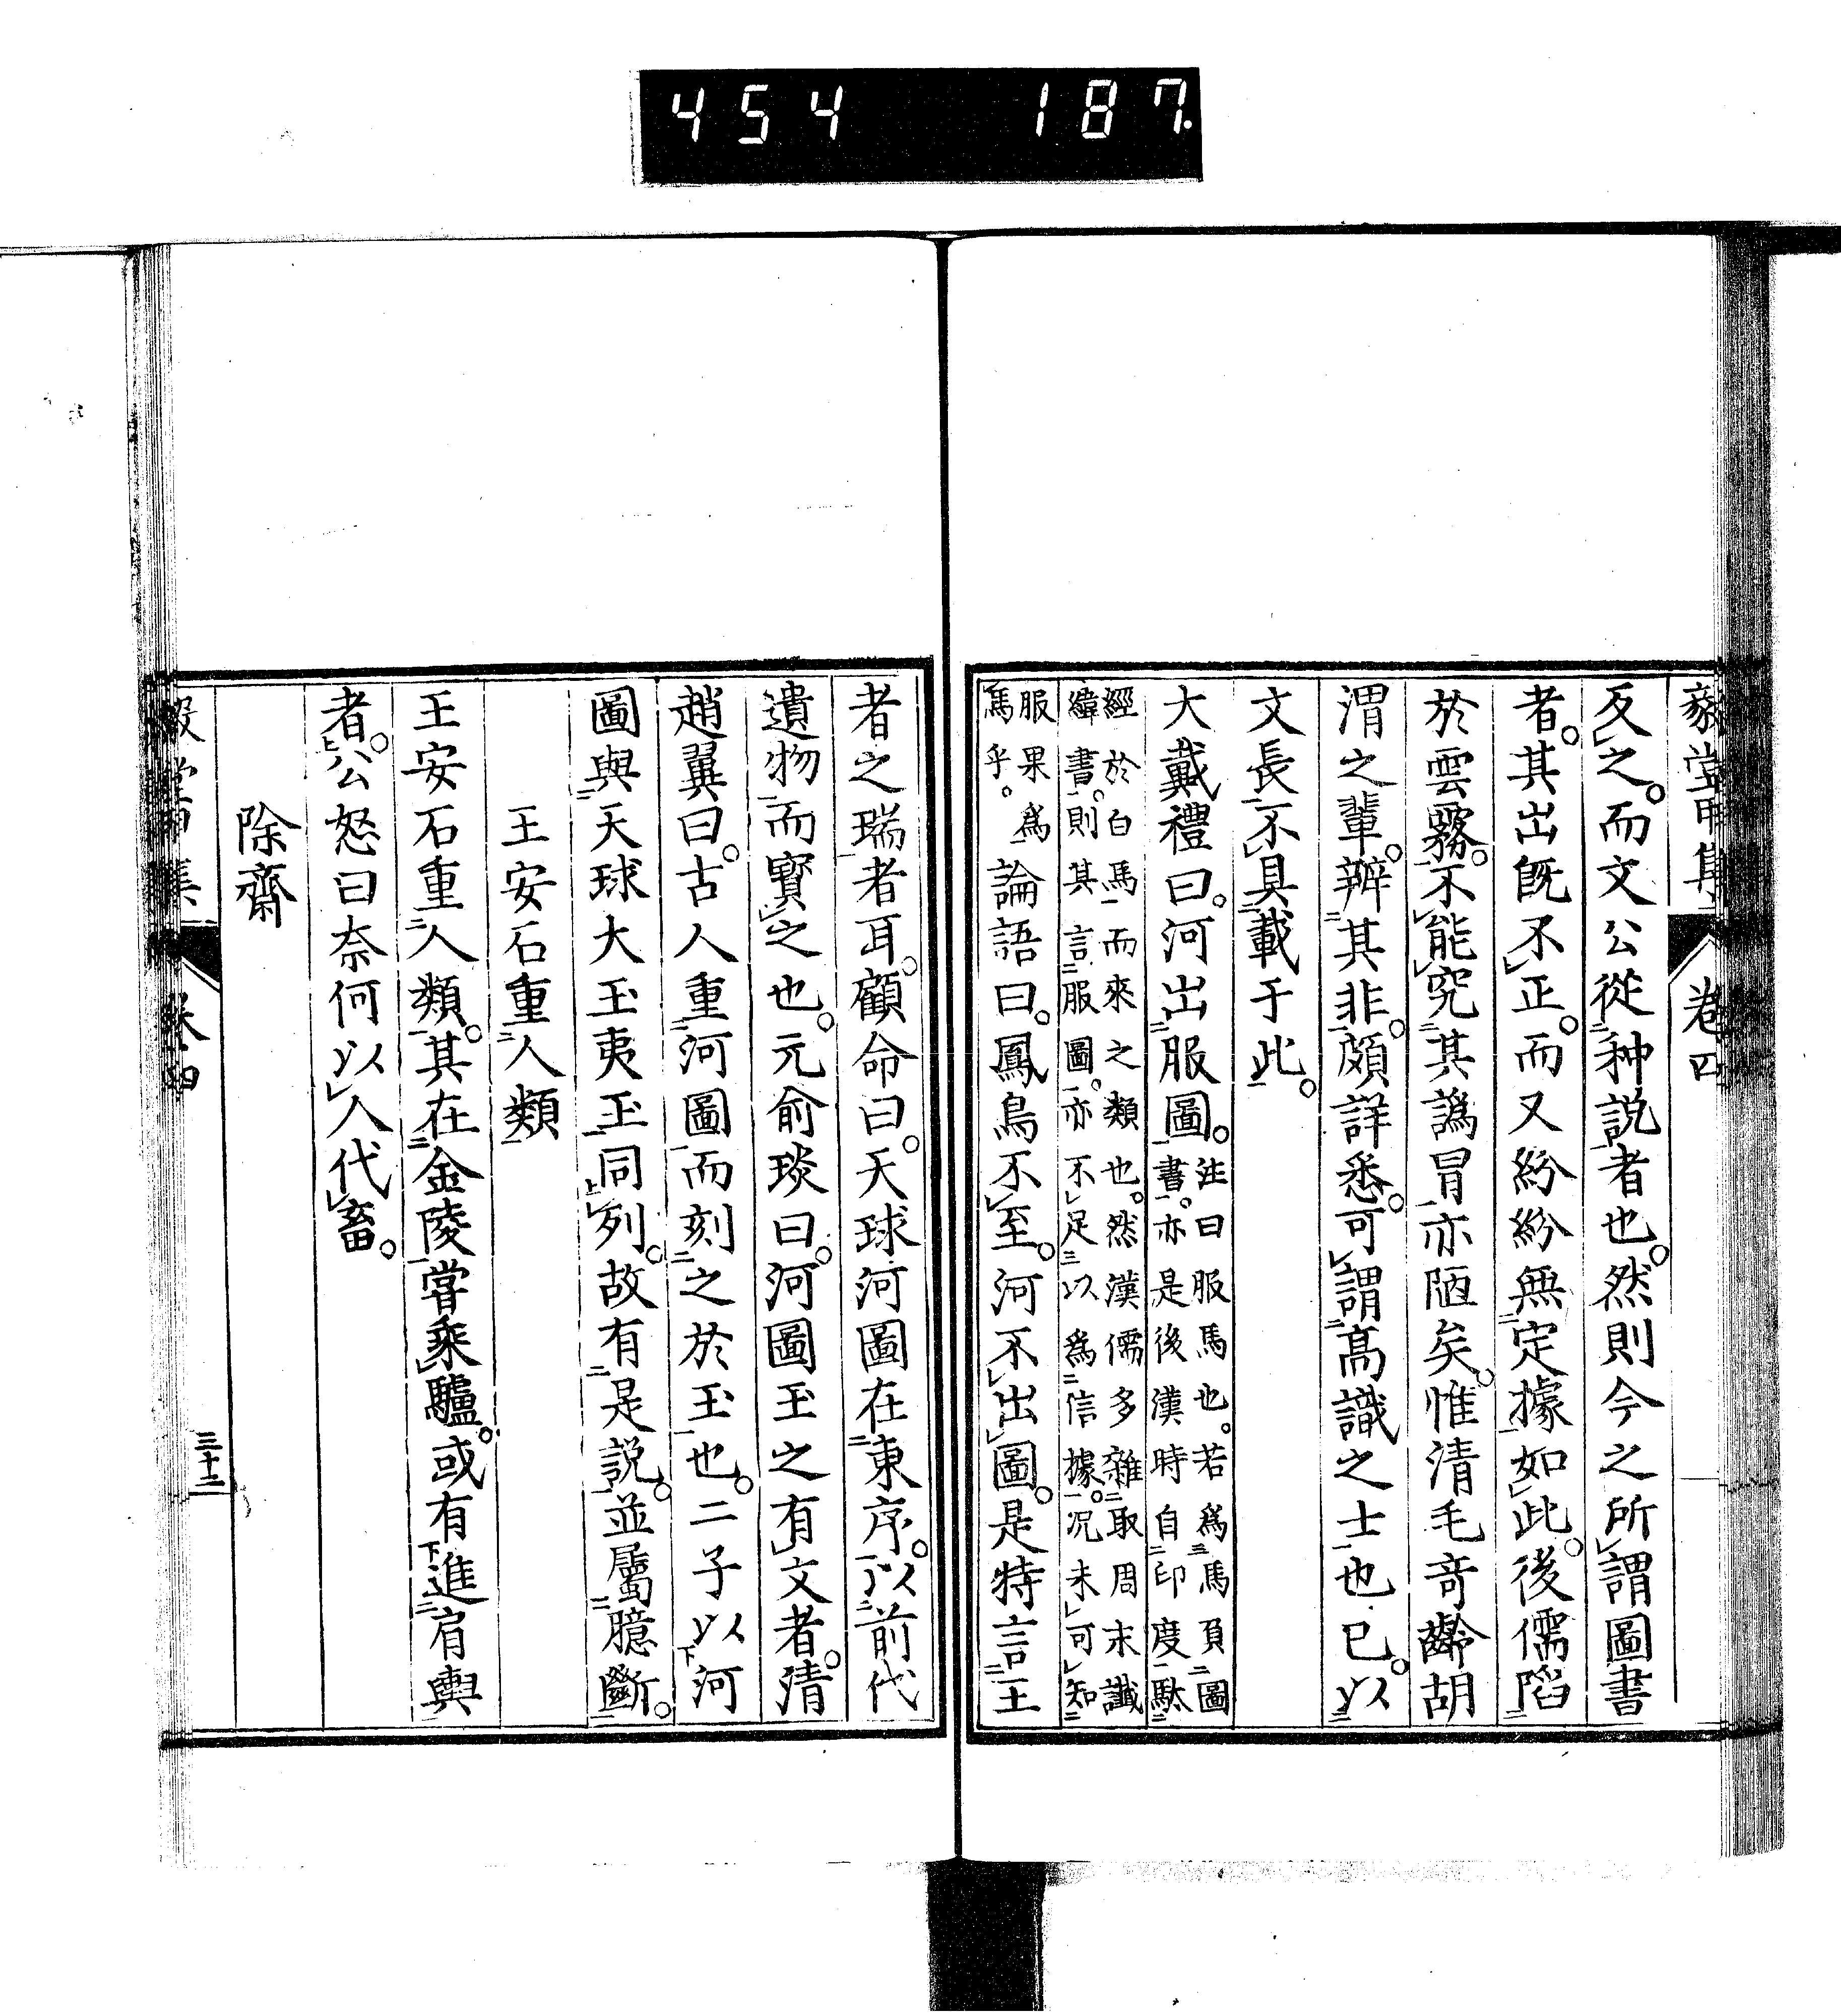 454 187
毅堂丙集 卷四
反之。而文公從种説者也。然則今之所謂圖書
者。其出既不正。而又紛紛無定據如此。後儒陷
於雲霧。不能究其譌冒。亦陋矣。惟清毛奇齡胡
渭之輩。辨其非。頗詳悉。可謂高識之士也已。以
文長。不具載于此。
大戴禮曰。河出服圖。注曰服馬也。若爲馬負圖
書。亦是後漢時自印度馱
經於白馬而來之類也。然漢儒多雜取周末讖
緯書。則其言服圖。亦不足以爲信據。况未可知
服果爲
馬乎。論語曰。鳳鳥不至。河不出圖。是特言王
者之瑞者耳。顧命曰。天球河圖在東序。以前代
遺物而寶之也。元俞琰曰。河圖玉之有文者。清
趙翼曰。古人重河圖而刻之於玉也。二子以河
圖與天球大玉夷玉同列。故有是説。並屬臆斷。
王安石重人類
王安石重人類。其在金陵嘗乘驢。或有進肩輿
者。公怒曰奈何以人代畜。
除齋
三十二